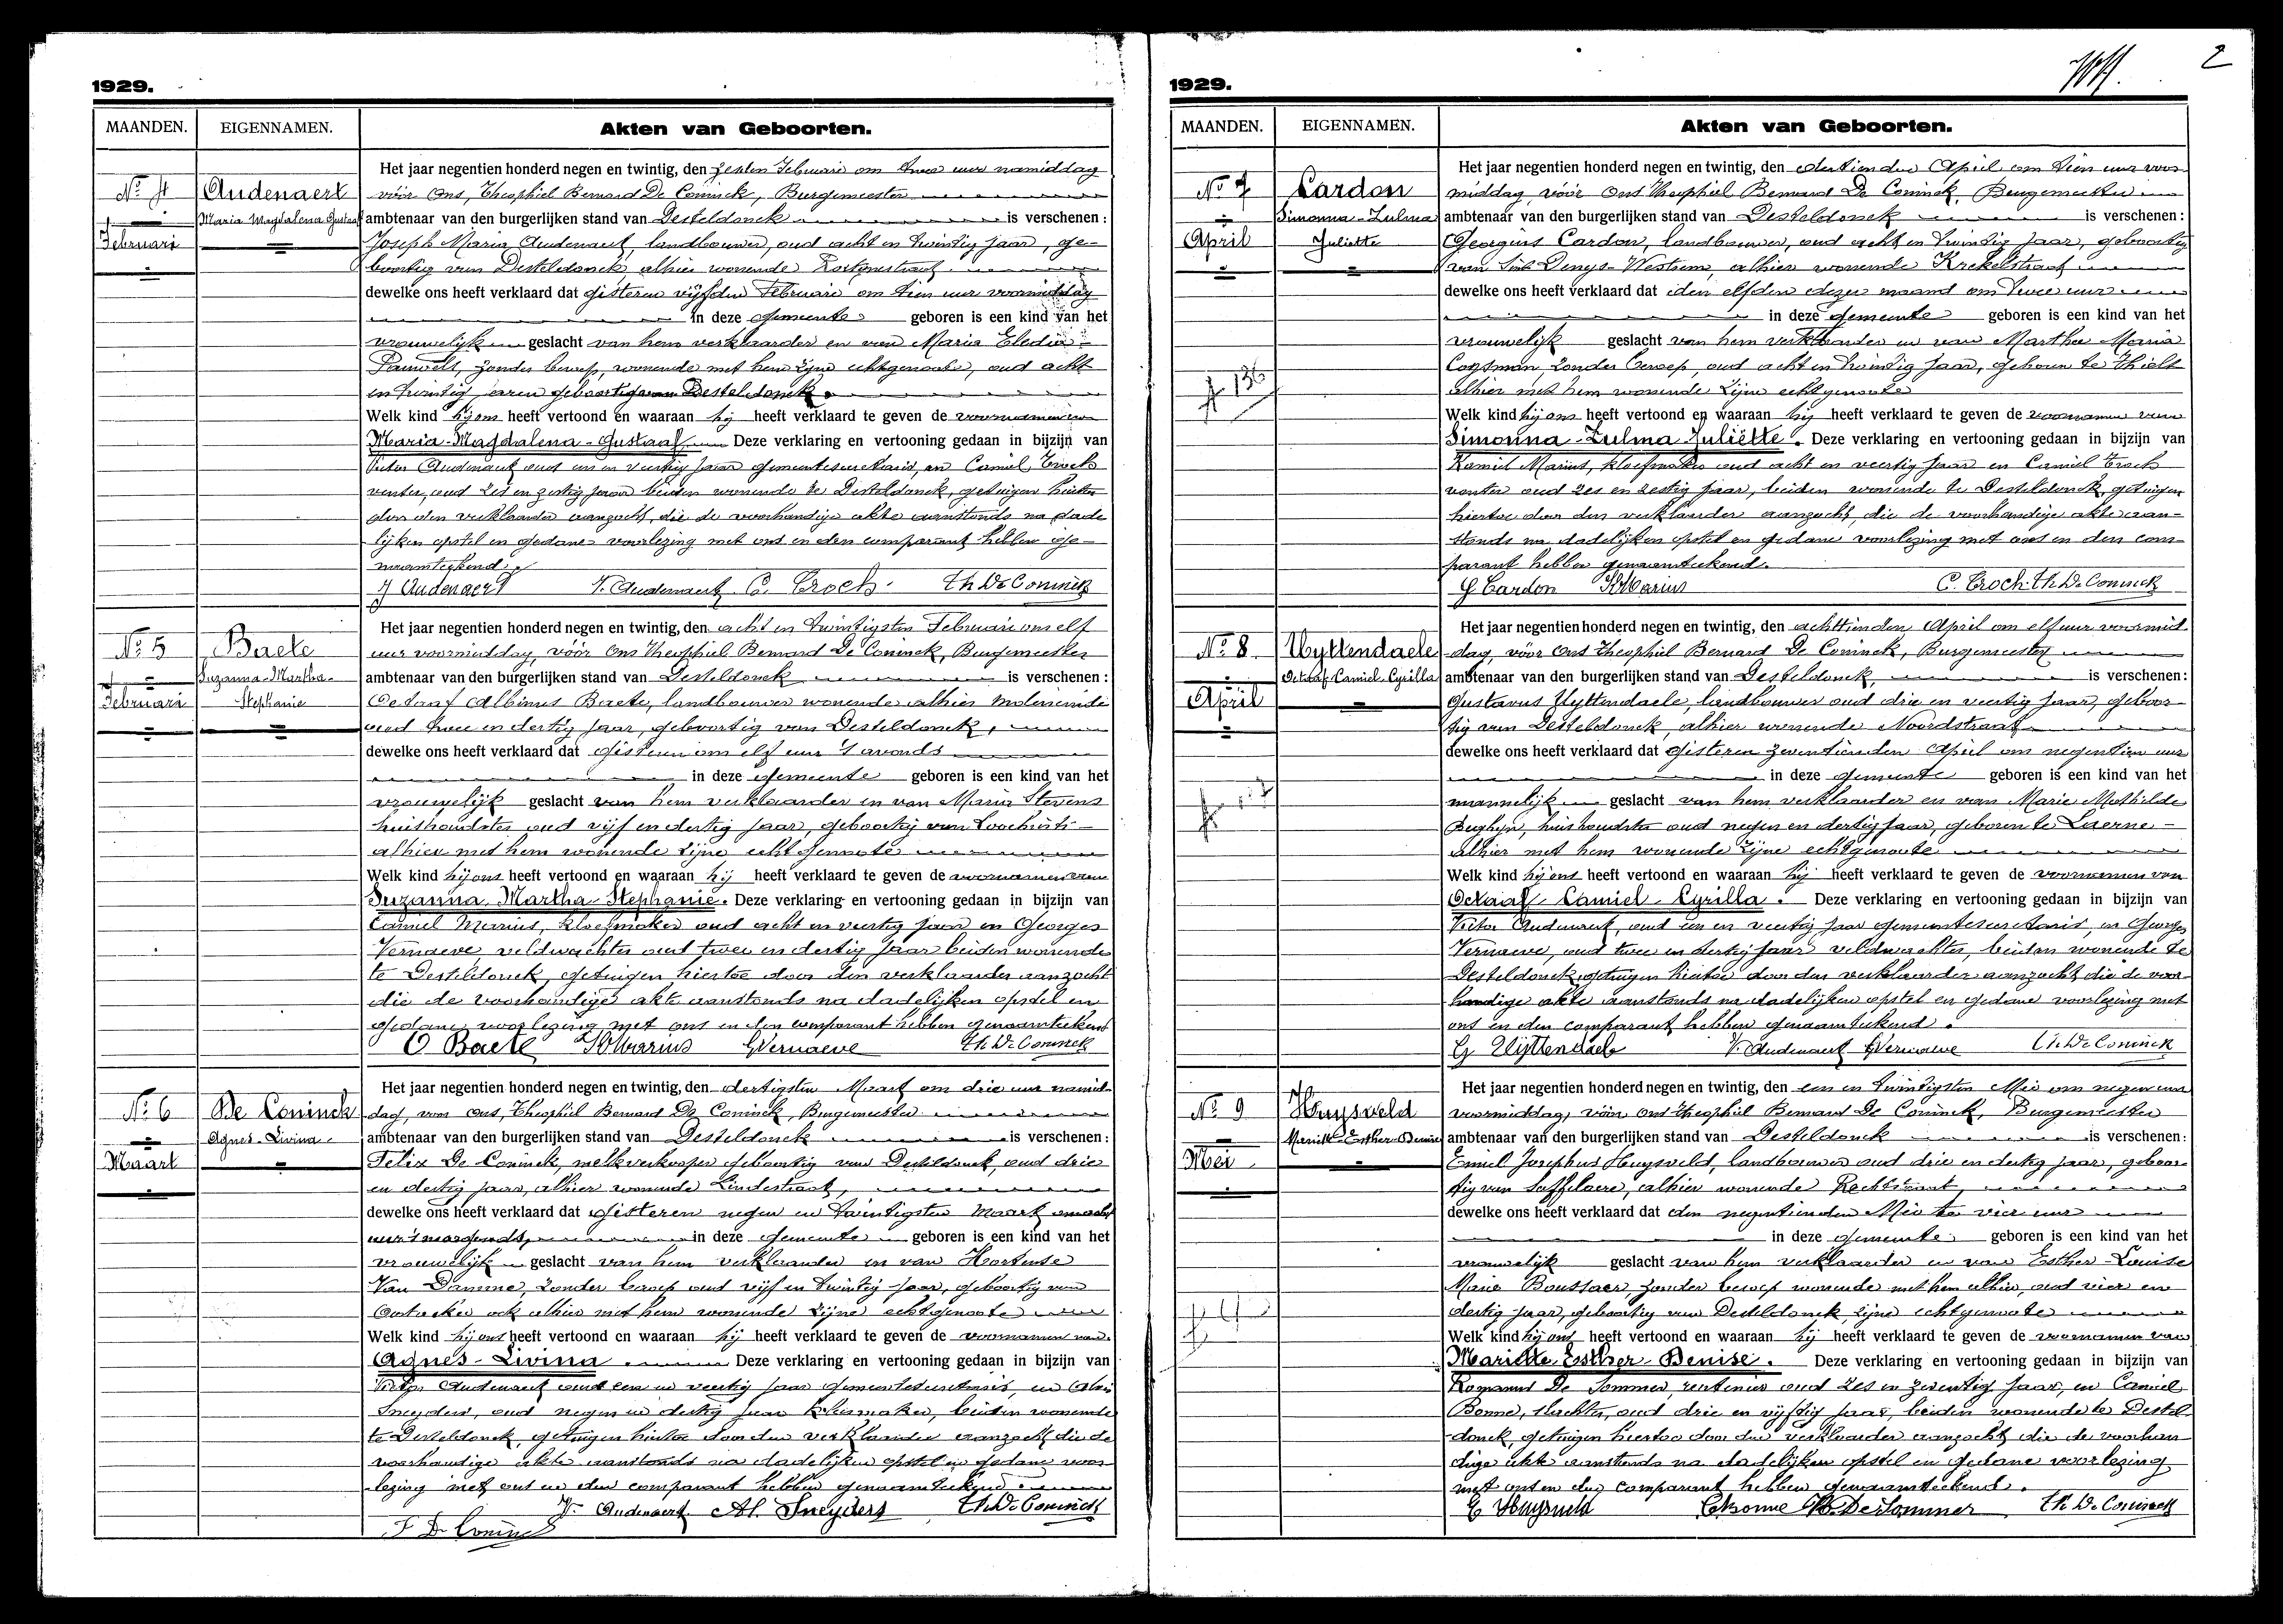 1929.
MAANDEN. EIGENNAMEN. Akten van Geboorten.
No 4
Februari
Audenaert
Maria Magdalena Gustaaf
Het jaar negentien honderd negen en twintig, den zesden Februari om twee uur namiddag
vóór Ons, Theophiel Bernard De Coninck, Burgemeester
ambtenaar van den burgerlijken stand van Desteldonck is verschenen :
Joseph Maria Audenaert, landbouwer, oud acht en twintig jaar, ge-
boortig van Desteldonck, alhier wonende
dewelke ons heeft verklaard dat gisteren vijfden Februari om tien uur voormiddag
in deze gemeente geboren is een kind van het
vrouwelijk geslacht van hem verklaarder en van Maria Eledia
Pauwels, zonder beroep, wonende met hem zijne echtgenoote, oud acht
en twintig jaren geboortig van Desteldonck.
Welk kind hij ons heeft vertoond en waaraan hij heeft verklaard te geven de voornamen van
Maria-Magdalena-Gustaaf. Deze verklaring en vertooning gedaan in bijzijn van
Victor Audenaert oud een en veertig jaar gemeentesecretaris, en Camiel Troch
renter, oud zes en zestig jaar beiden wonende te Desteldonck, getuigen hiertoe
door den verklaarder aanzocht, die de voorhandige akte aanstonds na dade
lijken opstel en gedane voorlezing met ons en den comparant hebben ge-
naamteekend.
J Audenaert V. Audenaert C. Troch Th De Coninck
No 5
Februari
Baete
Suzanna-Martha-
Stephanie
Het jaar negentien honderd negen en twintig, den acht en twintigsten Februari om elf
uur voormiddag, vóór Ons Theophiel Bernard De Coninck, Burgemeester
ambtenaar van den burgerlijken stand van Desteldonck is verschenen :
Octaaf Albinus Baete, landbouwer wonende alhier Moleneinde
oud twee en dertig jaar, geboortig van Desteldonck,
dewelke ons heeft verklaard dat gisteren om elf uur 's avonds
in deze gemeente geboren is een kind van het
vrouwelijk geslacht van hem verklaarder en van Maria Stevens
huishoudster oud vijf en dertig jaar, geboortig van Loochristi
alhier met hem wonende zijne echtgenoote
Welk kind hij ons heeft vertoond en waaraan hij heeft verklaard te geven de voornamen van
Suzanna Martha Stephanie. Deze verklaring en vertooning gedaan in bijzijn van
Camiel Marius, kloefmaker oud acht en veertig jaar en Georges
Vernaeve, veldwachter oud twee en dertig jaar beiden wonende
te Desteldonck, getuigen hiertoe door den verklaarder aanzocht
die de voorhandige akte aanstonds na dadelijken opstel en
gedane voorlezing met ons en den comparant hebben genaamteekend
O Baete K Marius G Vernaeve Th De Coninck
No 6
Maart
De Coninck
Agnes-Livina
Het jaar negentien honderd negen en twintig, den dertigsten Maart om drie uur namid-
dag, voor Ons, Theophiel Bernard De Coninck, Burgemeester
ambtenaar van den burgerlijken stand van Desteldonck is verschenen :
Felix De Coninck, melkverkooper geboortig van Desteldonck, oud drie
en dertig jaar, alhier wonende Lindestraat,
dewelke ons heeft verklaard dat gisteren negen en twintigsten Maart om acht
uur 's morgends, in deze gemeente geboren is een kind van het
vrouwelijk geslacht van hem verklaarder en van Hortense
Van Damme, zonder beroep oud vijf en twintig jaar, geboortig van
Oostacker ook alhier met hem wonende zijne echtgenoote
Welk kind hij ons heeft vertoond en waaraan hij heeft verklaard te geven de voornamen van
Agnes-Livina Deze verklaring en vertooning gedaan in bijzijn van
Victor Audenaert oud een en veertig jaar gemeentesecretaris, en
Sneyders, oud negen en dertig jaar, beiden wonende
te Desteldonck, getuigen hiertoe door den verklaarder aanzocht die de
voorhandige akte aanstonds na dadelijken opstel en gedane voor
lezing met ons en den comparant hebben genaamteekend
V. Audenaert Al. Sneyders Th De Coninck
F De Coninck
2
1929.
MAANDEN. EIGENNAMEN. Akten van Geboorten.
No 7
April
Cardon
Simonna-Zulma
Juliette
Het jaar negentien honderd negen en twintig, den dertienden April om tien uur voor
middag, vóór Ons Theophiel Bernard De Coninck, Burgemeester
ambtenaar van den burgerlijken stand van Desteldonck is verschenen :
Georgius Cardon, landbouwer, oud acht en twintig jaar, geboortig
van Sint Denys-Westrem, alhier wonende Krekelstraat
dewelke ons heeft verklaard dat den elfden dezer maand om twee uur
in deze gemeente geboren is een kind van het
vrouwelijk geslacht van hem verklaarder en van Martha Maria
Coosman, zonder beroep, oud acht en twintig jaar, geboren te Thielt
alhier met hem wonende zijne echtgenoote
Welk kind hij ons heeft vertoond en waaraan hij heeft verklaard te geven de voornamen van
Simonna-Zulma Juliëtte. Deze verklaring en vertooning gedaan in bijzijn van
Kamiel Marius, kloefmaker oud acht en veertig jaar en Camiel Troch
renter oud zes en zestig jaar, beiden wonende te Desteldonck getuigen
hiertoe door den verklaarder aanzocht, die de voorhandige akte aan-
stonds na dadelijken opstel en gedane voorlezing met ons en den com-
parant hebben genaamteekend.
G Cardon K Marius C. Troch Th De Coninck
No 8
April
Uyttendaele
Octaaf Camiel Cyrilla
Het jaar negentien honderd negen en twintig, den achttienden April om elf uur voormid
dag, vóór Ons Theophiel Bernard De Coninck, Burgemeester
ambtenaar van den burgerlijken stand van Desteldonck, is verschenen:
Gustavus Uyttendaele, landbouwer oud drie en veertig jaar, geboor-
tig van Desteldonck, alhier wonende Noordstraat
dewelke ons heeft verklaard dat gisteren zeventienden April om negentien uur
in deze gemeente geboren is een kind van het
mannelijk geslacht van hem verklaarder en van Marie Mathilde
Beghyn, huishoudster oud negen en dertig jaar, geboren te Laerne-
alhier met hem wonende zijne echtgenoote
Welk kind hij ons heeft vertoond en waaraan hij heeft verklaard te geven de voornamen van
Octaaf-Camiel-Cyrilla. Deze verklaring en vertooning gedaan in bijzijn van
Victor Audenaert, oud een en veertig jaar gemeentesecretaris, en Georges
Vernaeve, oud twee en dertig jaar veldwachter, beiden wonende te
Desteldonck, getuigen hiertoe door den verklaarder aanzocht, die de voor-
handige akte aanstonds na dadelijken opstel en gedane voorlezing met
ons en den comparant hebben genaamteekend.
G Uyttendaele V. Audenaert G Vernaeve Th De Coninck
No 9
Mei
Huysveld
Mariette-Esther-Denise
Het jaar negentien honderd negen en twintig, den een en twintigsten Mei om negen uur
voormiddag, vóór Ons Theophiel Bernard De Coninck, Burgemeester
ambtenaar van den burgerlijken stand van Desteldonck is verschenen:
Emiel Josephus Huysveld, landbouwer oud drie en dertig jaar, geboor
tig van Saffelaere, alhier wonende Rechtstraat,
dewelke ons heeft verklaard dat den negentienden Mei te vier uur
in deze gemeente geboren is een kind van het
vrouwelijk geslacht van hem verklaarder en van Esther-Louise
Marie Boussaer, zonder beroep wonende met hem alhier, oud vier en
dertig jaar, geboortig van Desteldonck, zijne echtgenoote
Welk kind hij ons heeft vertoond en waaraan hij heeft verklaard te geven de voornamen van
Mariette-Esther-Denise. Deze verklaring en vertooning gedaan in bijzijn van
Romanus De Sommer, rentenier oud zes en zeventig jaar, en Camiel
Bonne, slachter, oud drie en vijftig jaar, beiden wonende te Destel
donck, getuigen hiertoe door den verklaarder aanzocht, die de voorhan
dige akte aanstonds na dadelijken opstel en gedane voorlezing
met ons en den comparant hebben genaamteekend.
E Huysveld C Bonne R. De Sommer Th De Coninck